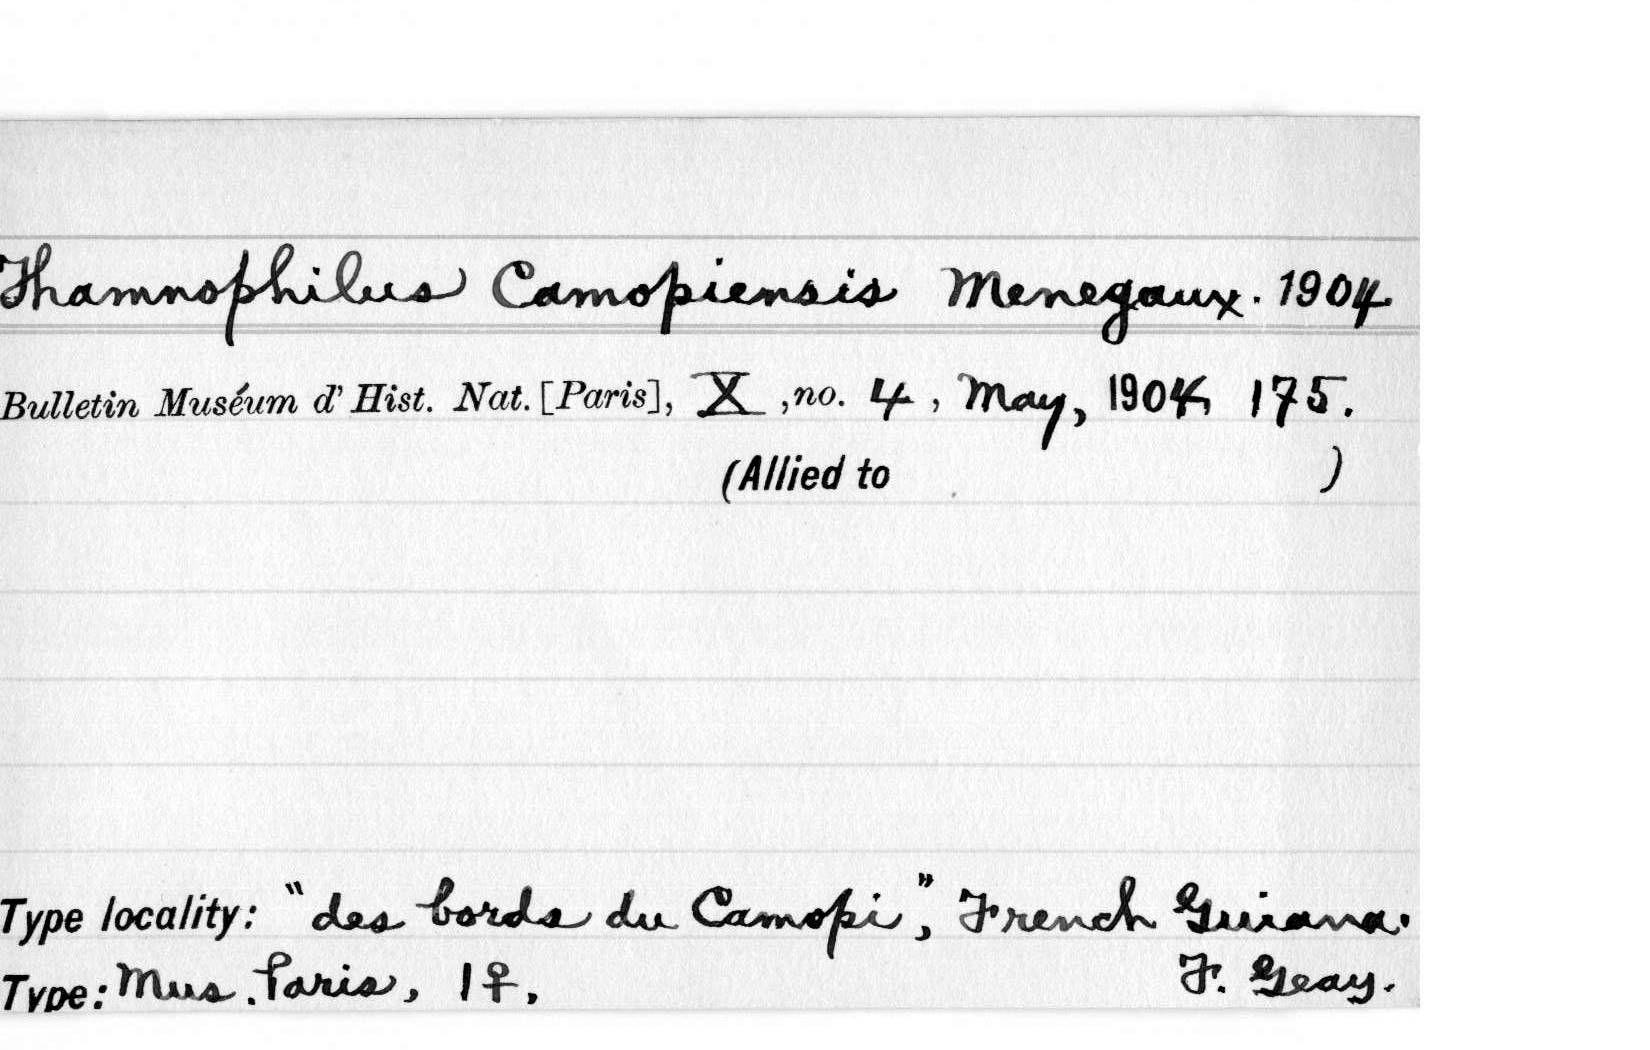 Thamnophilus Camopiensis Menegaux. 1904
Bulletin Muséum d' Hist. Nat. [Paris], X, no. 4, May, 1904, 175.
(Allied to )
Type locality: "des bords du Camopi", French Guiana.
Type: Mus. Paris, 1♀, F. Geay.